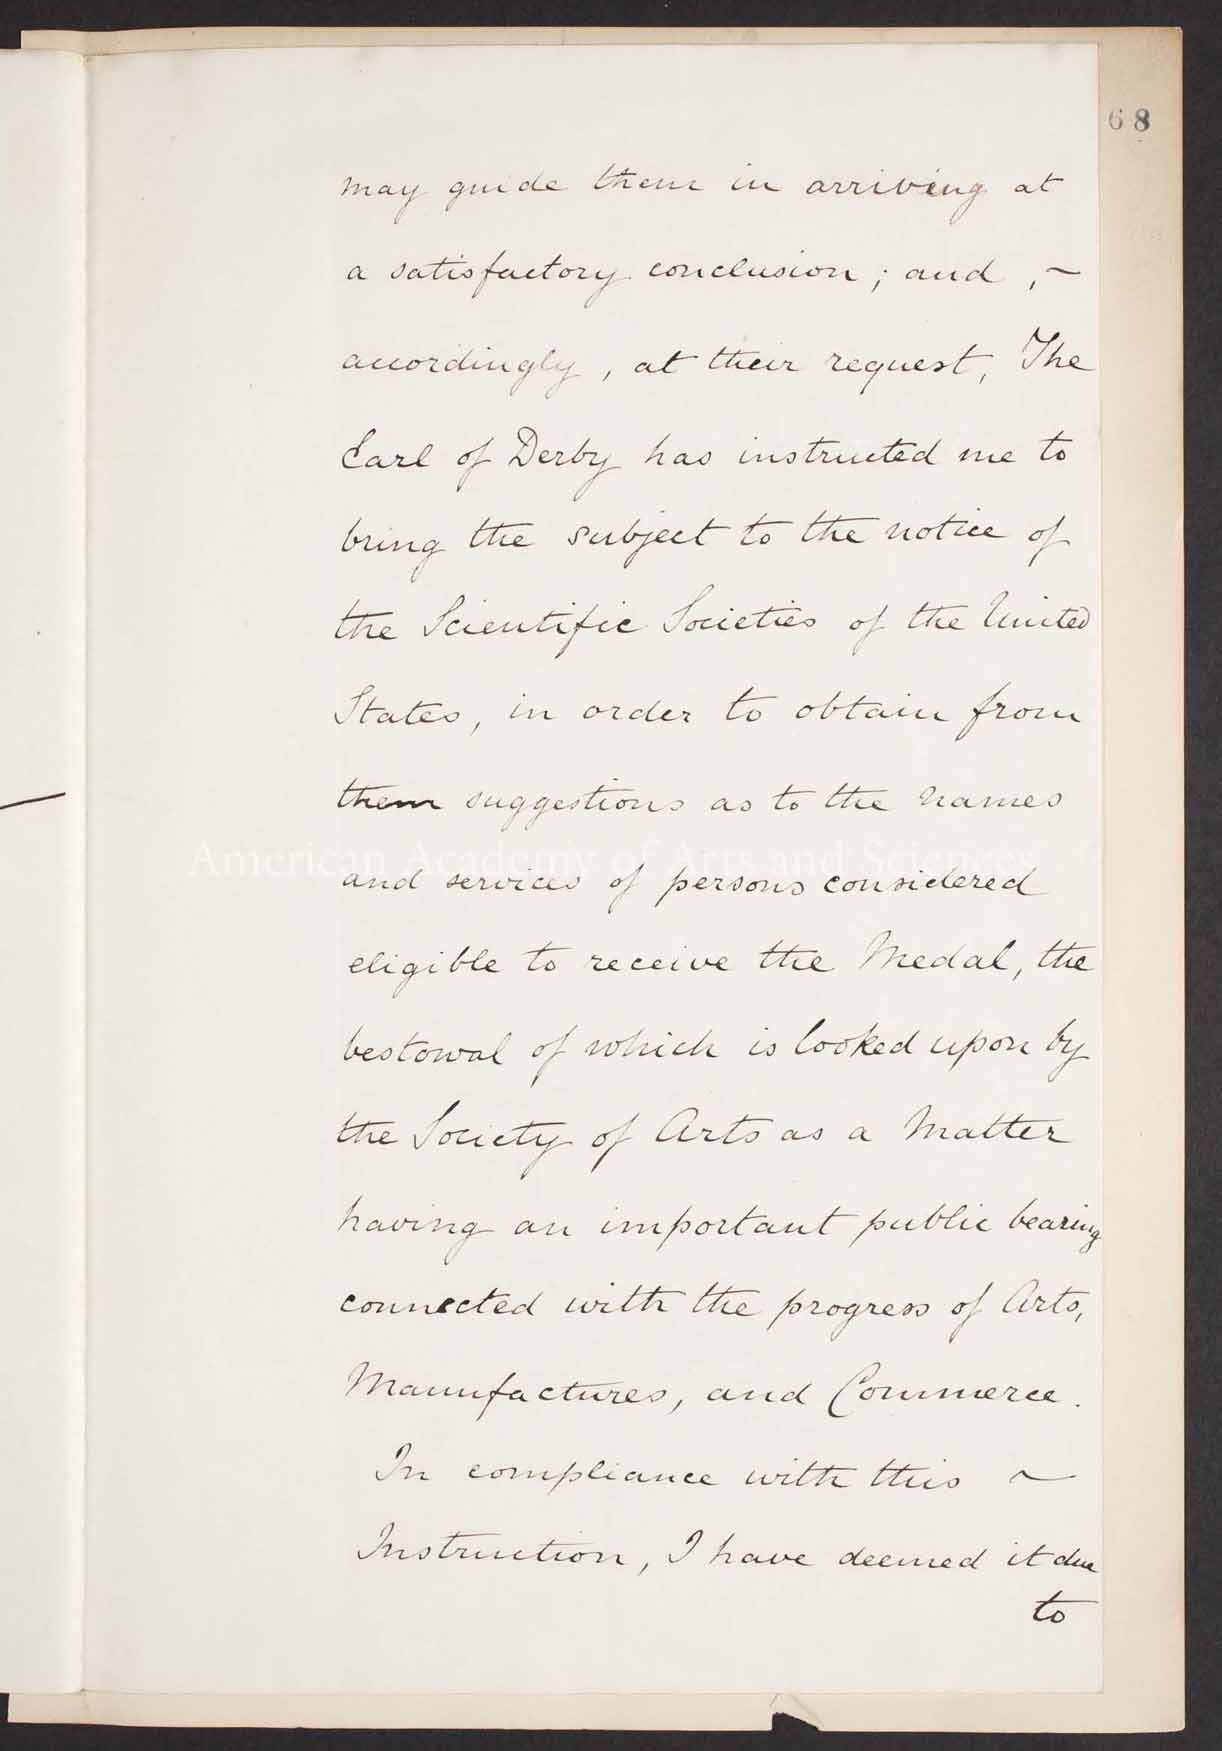 68
may guide them in arriving at
a satisfactory conclusion; and, ~
accordingly, at their request, The
Earl of Derby has instructed me to
bring the subject to the notice of
the Scientific Societies of the United
States, in order to obtain from
them suggestions as to the names
American Academy of Arts and Sciences
and services of persons considered
eligible to receive the Medal, the
bestowal of which is looked upon by
the Society of Arts as a Matter
having an important public bearing
connected with the progress of Arts,
Manufactures, and Commerce.
In compliance with this ~
Instruction, I have deemed it due
to